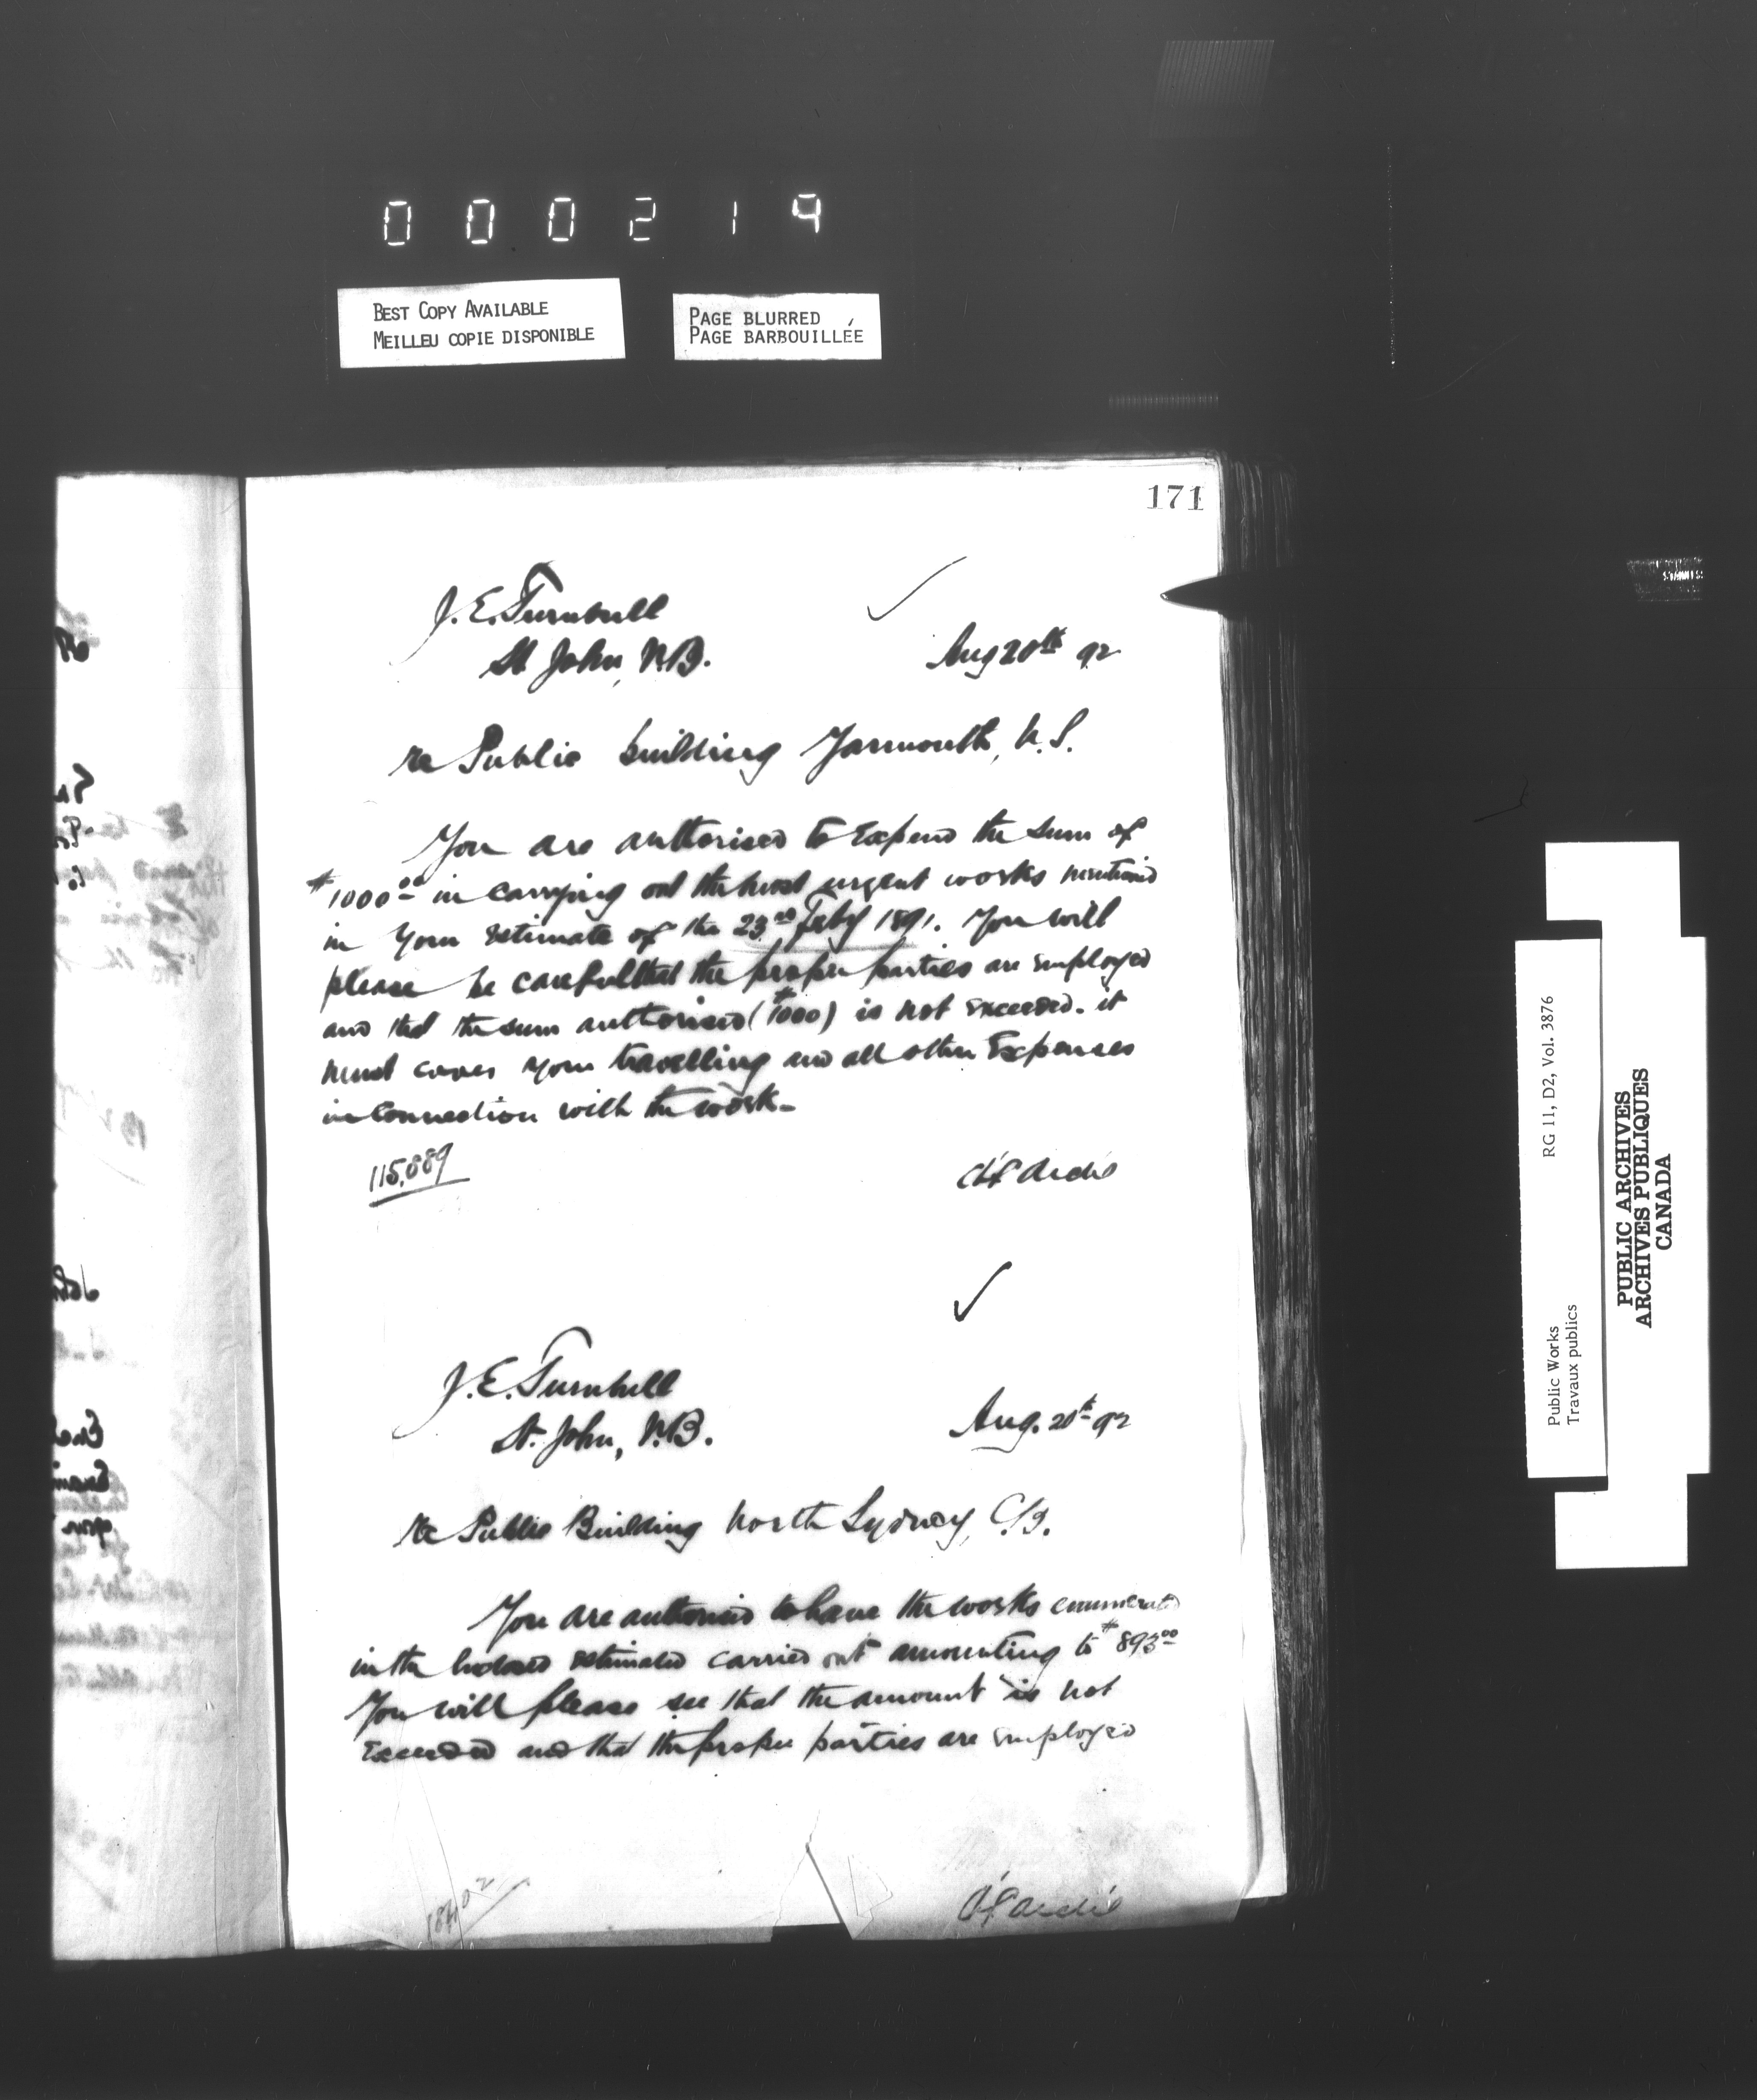 000219
BEST COPY AVAILABLE
MEILLEU COPIE DISPONIBLE
PAGE BLURRED
PAGE BARBOUILLÉE
171
J. E. Turnbull
St John, N.B.
Aug 20th 92
re Public building Yarmouth, N.S.
You are authorised to Expend the sum of
$1000.00 in carrying out the most urgent works mentioned
in your estimate of the 23rd Feby 1891. You will
please be careful that the proper parties are employed
and that the sum authorised ($1000) is not exceeded. it
must cover your travelling and all other Expenses
in connection with the work.
115,889
Ch'f Archt
J. E. Turnbull
St. John, N.B.
Aug. 20th 92
Re Public Building North Sydney, C.B.
You are authorised to have the works enumerated
in the Inclosed estimate carried out amounting to $893.00
You will please see that the amount is not
Exceeded and that the proper parties are employed
Ch'f Archt
Public Works
Travaux publics
RG 11, D2, Vol. 3876
PUBLIC ARCHIVES
ARCHIVES PUBLIQUES
CANADA